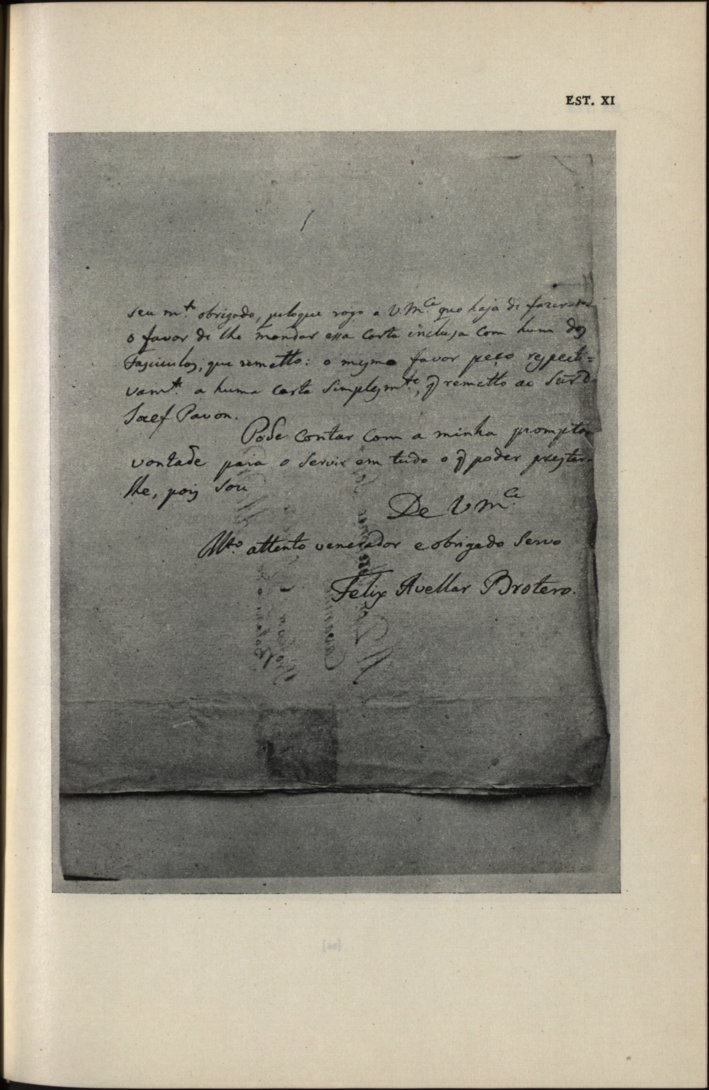 EST. XI
seu m.to obrigado, peloque rogo a V.M.ce que haja de fazer-me
o favor de lhe mandar essa Carta inclusa com hum dos
Fasciculos, que remetto: o mesmo favor peço respecti=
vam.te a huma carta simplesm.te, q̃ remetto ao Sñr D.
Josef Pavon.
Pode contar com a minha prompta
vontade para o servir em tudo o q̃ poder prestar-
lhe, pois sou
De V.M.ce
M.to attento venerador e obrigado Servo
Felix Avellar Brotero.